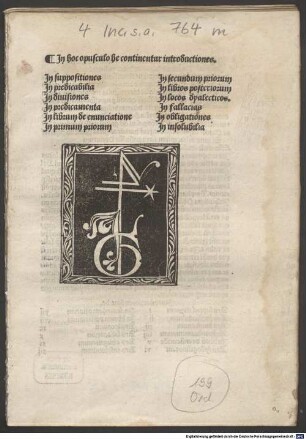 4 Inc. s. a. 764 m
¶ In hoc opusculo he continentur introductiones.
In suppositiones
In predicabilia
In divisiones
In predicamenta
In librum de enunciatione
In primum priorum
In secundum priorum
In libros posteriorum
In locos dyalecticos.
In fallacias
In obligationes
In insolubilia
159
Ord